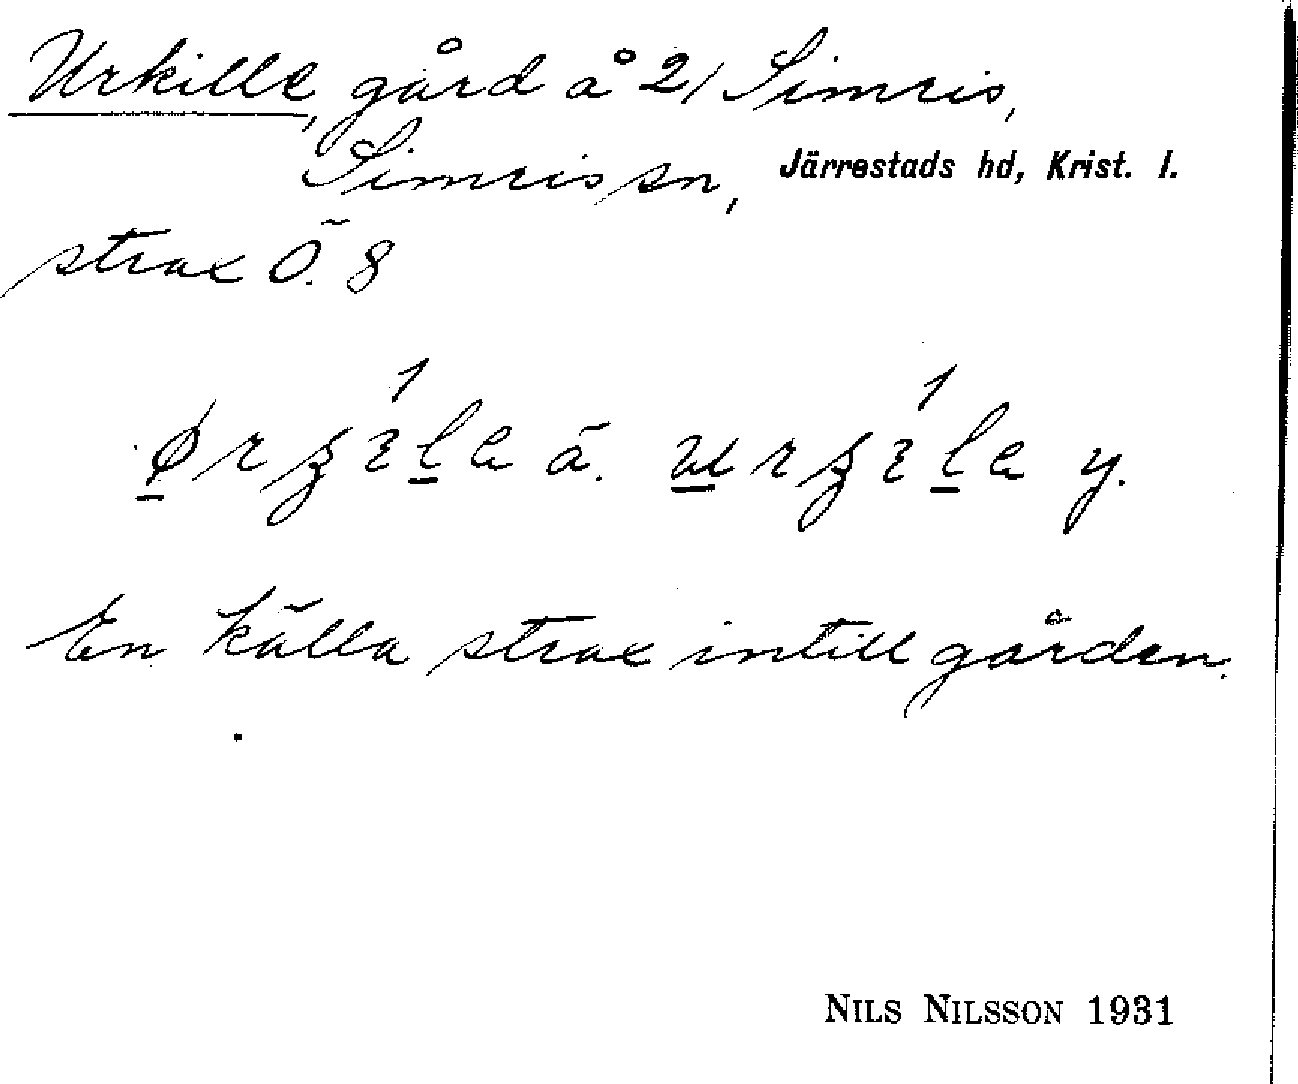 Urkille, gård å 21 Simris,
Simris sn, Järrestads hd, Krist. l.
strax Ö. 8
ä. y.
En källa strax intill gården.
NILS NILSSON 1931